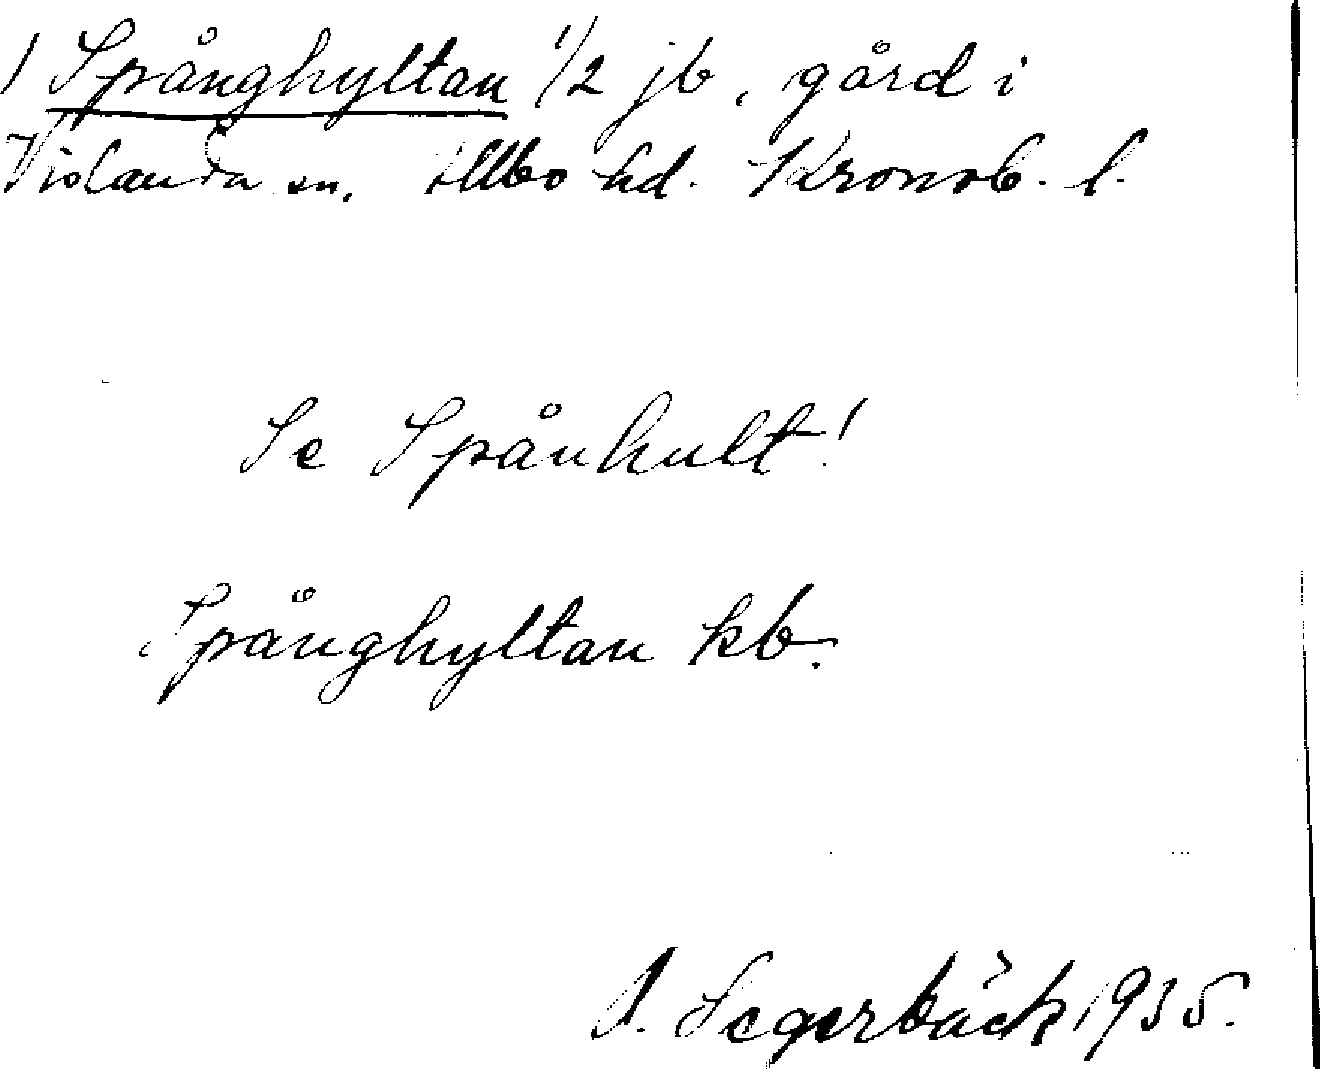 1 Spånghyltan 1/2 jb, gård i
Vislanda sn. Allbo hd. Kronob. l.
Se Spånhult!
Spånghyltan kb.
A. Segerbäck 1935.